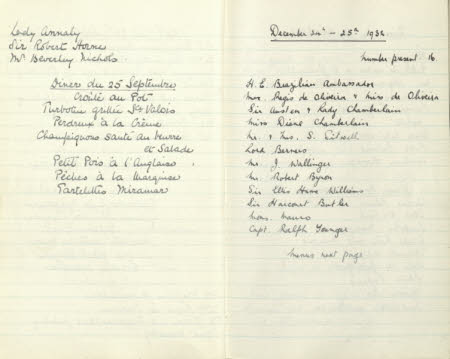 Lady Annaly
Sir Robert Horne
Mr Beverley Nichols
Diners du 25 Septembre
Croûte au Pot
Turbotin grillée St Valois
Perdreux à la Crême
Champignons sauté au beurre
et Salade
Petit Pois à l'Anglaise
Pêches à la Marquise
Tartelettes Miramar
December 24th - 25th 1936
Number present 16.
H. E. Brazilian Ambassador
Mme Regis de Oliveira & Miss de Oliveira
Sir Austen & Lady Chamberlain
Miss Diane Chamberlain
Mr. & Mrs. S. Sitwell
Lord Berners
Mr. J. Wallinger
Mr. Robert Byron
Sir Ellis Hume Williams
Sir Harcourt Butler
Mons.
Capt. Ralph Younger
Menus next page